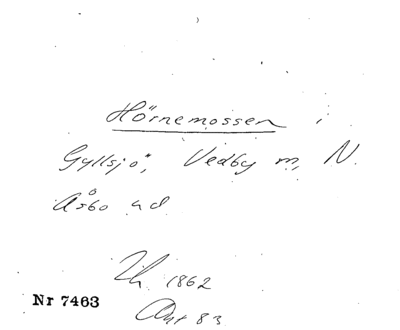 Hörnemossen i
Gyllsjö, Vedby m, N.
Åsbo ud
1862
Nr 7463
83